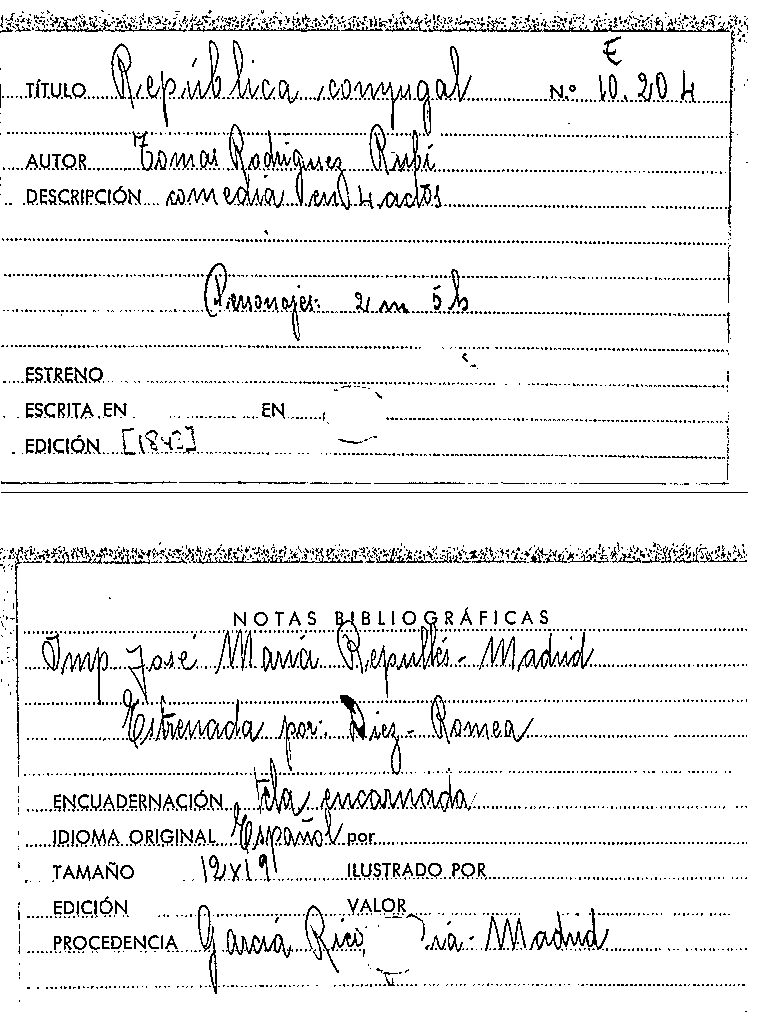 E
TÍTULO República conyugal N.º 10.204
AUTOR Tomas Rodriguez Rubí
DESCRIPCIÓN comedia en 4 actos
Personajes: 2 m 5 h
ESTRENO
ESCRITA EN EN
EDICIÓN [1843]
NOTAS BIBLIOGRÁFICAS
Imp José María Repullés - Madrid
Estrenada por: Diez - Romea
ENCUADERNACIÓN tela encarnada
IDIOMA ORIGINAL Español por
TAMAÑO 12x19 ILUSTRADO POR
EDICIÓN VALOR
PROCEDENCIA García Rico - Madrid